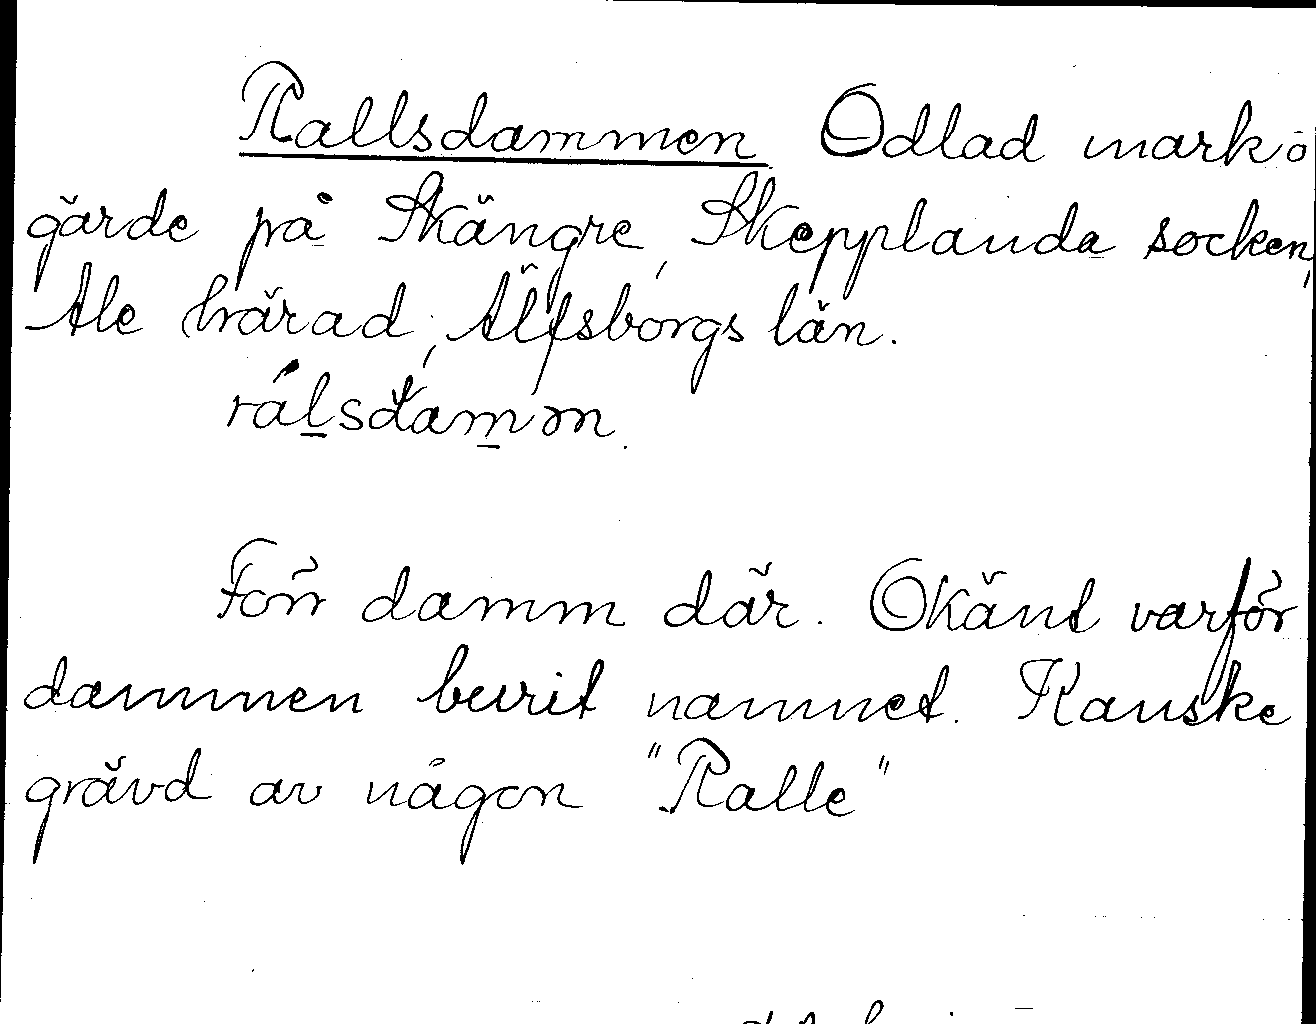 Rallsdammen Odlad mark o
gärde på Skängre, Skepplanda socken,
Ale härad, Älfsborgs län.
rálsdamən.
Förr damm där. Okänt varför
dammen burit namnet. Kanske
grävd av någon "Ralle"